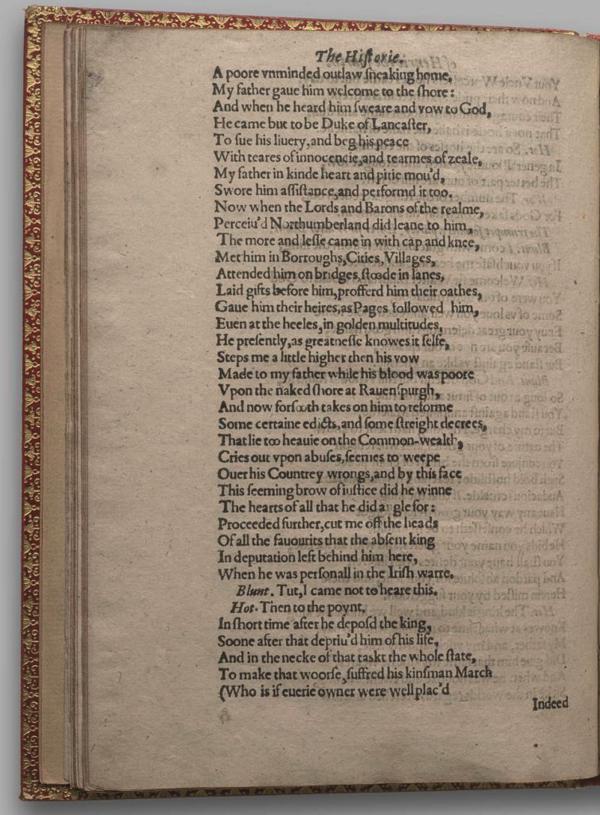 The Hiſtorie.
A poore vnminded outlaw ſneaking home,
My father gaue him welcome to the ſhore:
And when he heard him ſweare and vow to God,
He came but to be Duke of Lancaſter,
To ſue his liuery, and beg his peace
With teares of innocencie, and tearmes of zeale,
My father in kinde heart and pitie mou'd,
Swore him aſſiſtance, and performd it too.
Now when the Lords and Barons of the realme,
Perceiu'd Northumberland did leane to him,
The more and leſſe came in with cap and knee,
Met him in Borroughs, Cities, Villages,
Attended him on bridges, ſtoode in lanes,
Laid gifts before him, profferd him their oathes,
Gaue him their heires, as Pages followed him,
Euen at the heeles, in golden multitudes,
He preſently, as greatneſſe knowes it ſelfe,
Steps me a little higher then his vow
Made to my father while his blood was poore
Vpon the naked ſhore at Rauenſpurgh,
And now forſooth takes on him to reforme
Some certaine edicts, and ſome ſtreight decrees,
That lie too heauie on the Common-wealth,
Cries out vpon abuſes, ſeemes to weepe
Ouer his Countrey wrongs, and by this face
This ſeeming brow of iuſtice did he winne
The hearts of all that he did angle for:
Proceeded further, cut me off the heads
Of all the fauourits that the abſent king
In deputation left behind him here,
When he was perſonall in the Iriſh warre.
Blunt. Tut, I came not to heare this.
Hot. Then to the poynt.
In ſhort time after he depoſd the king,
Soone after that depriu'd him of his life,
And in the necke of that taskt the whole ſtate,
To make that woorſe, ſuffred his kinſman March
(Who is if euerie owner were well plac'd
Indeed